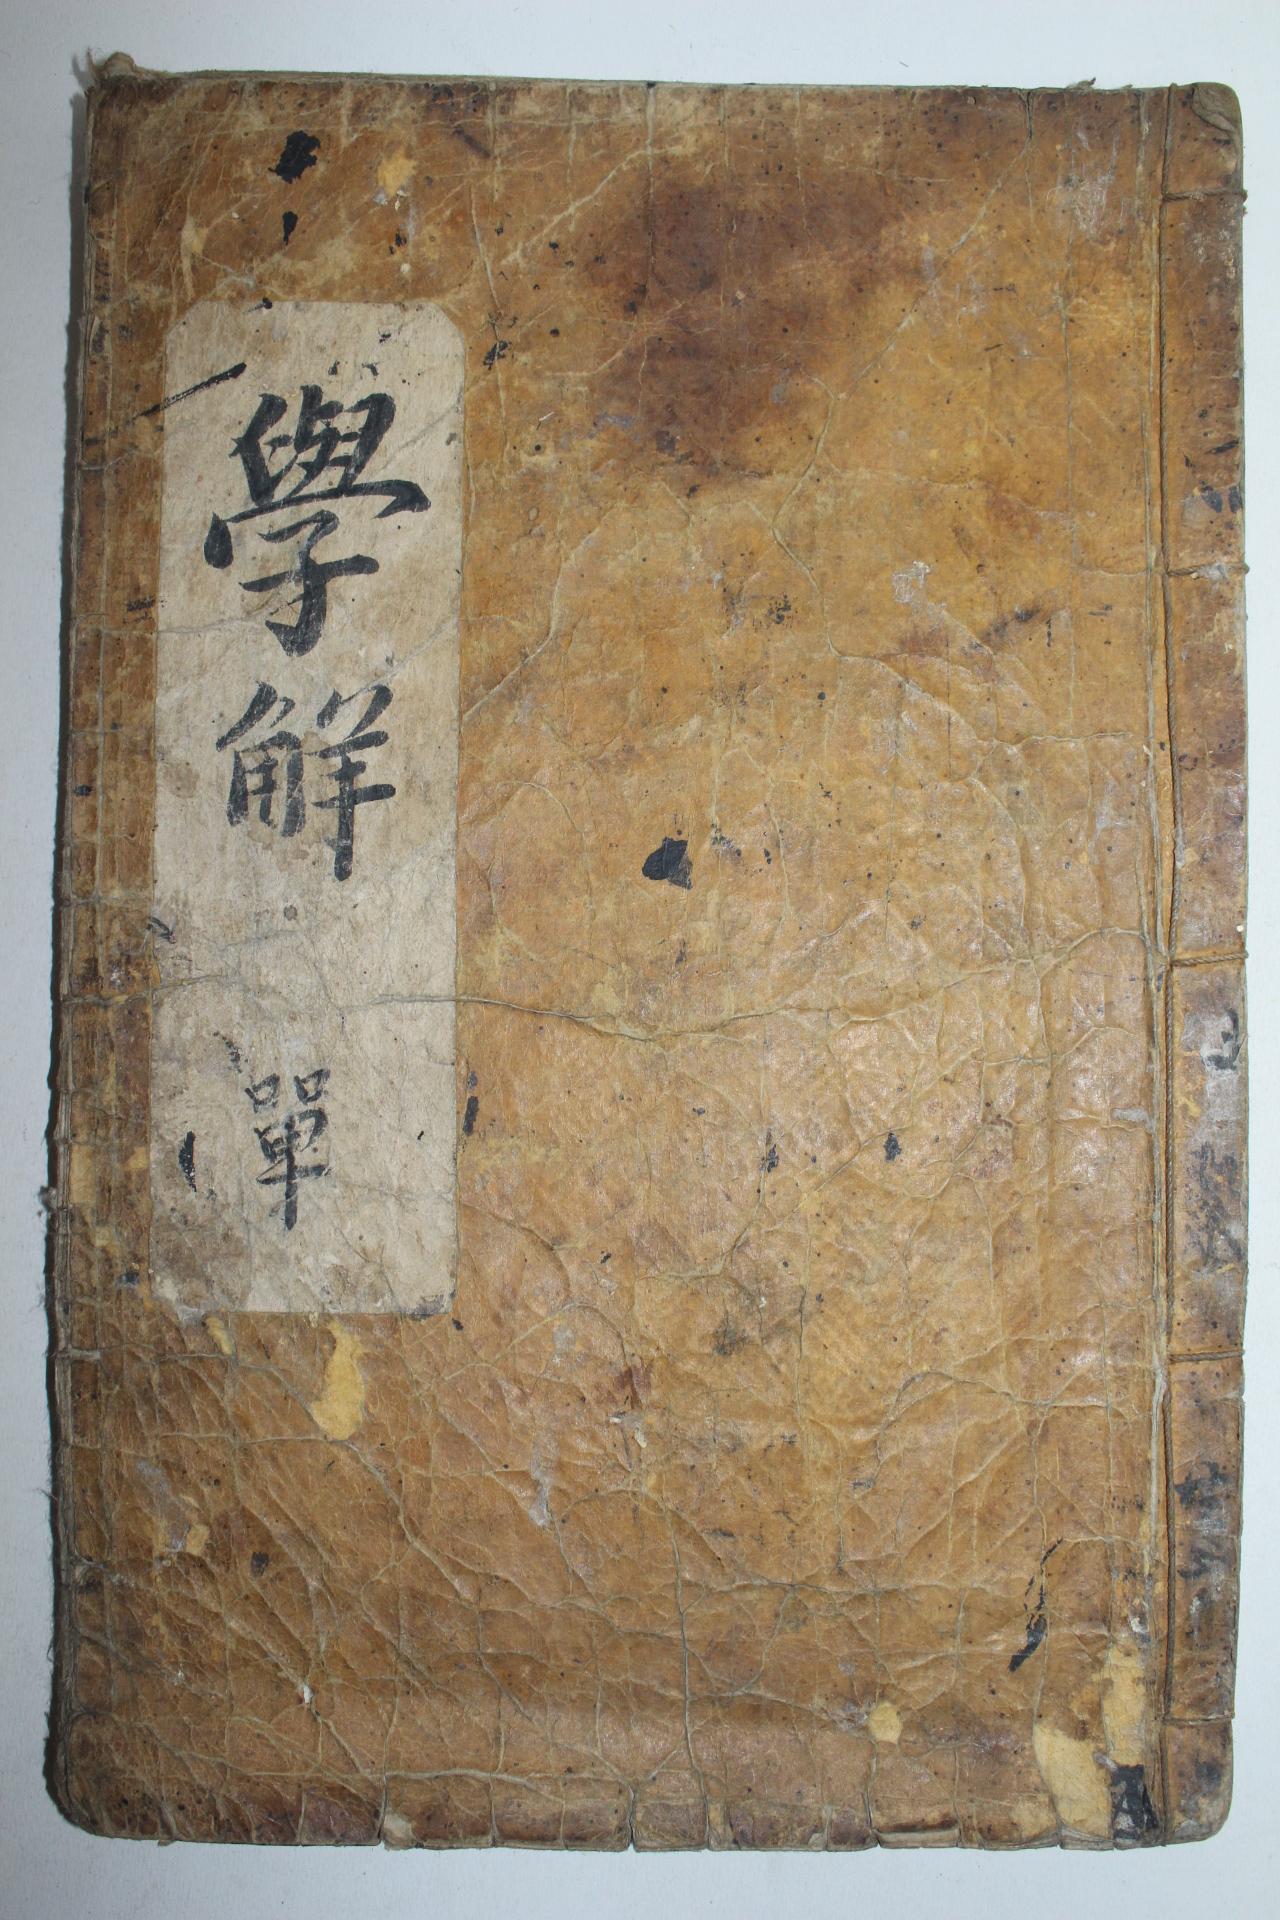 學解
單